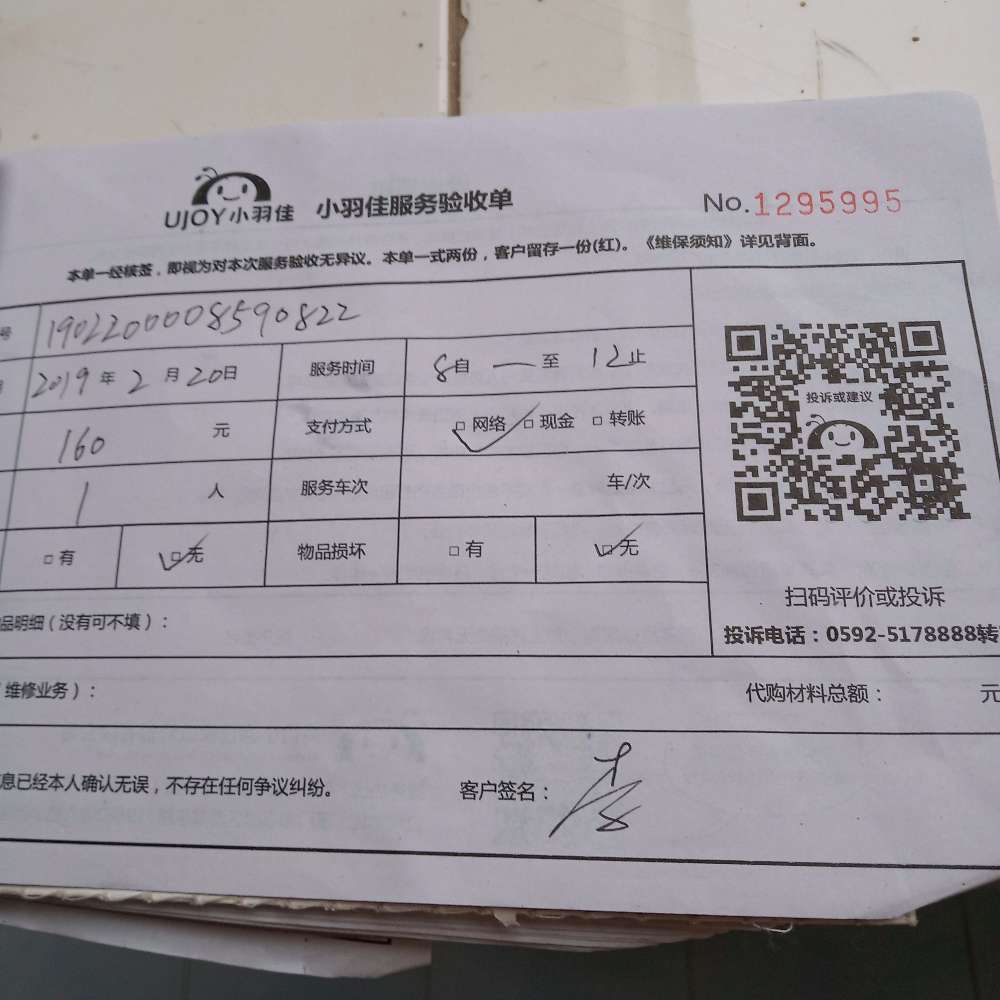 UJOY小羽佳 小羽佳服务验收单 No.1295995
本单一经核签，即视为对本次服务验收无异议。本单一式两份，客户留存一份(红)。《维保须知》详见背面。
号 1902200008590822
2019年2月20日 服务时间 8自一至12止
160元 支付方式 □网络 □现金 □转账
1人 服务车次 车/次
□有 □无 物品损坏 □有 □无
投诉或建议
扫码评价或投诉
品明细（没有可不填）：
投诉电话：0592-5178888转
维修业务）： 代购材料总额： 元
息已经本人确认无误，不存在任何争议纠纷。 客户签名：